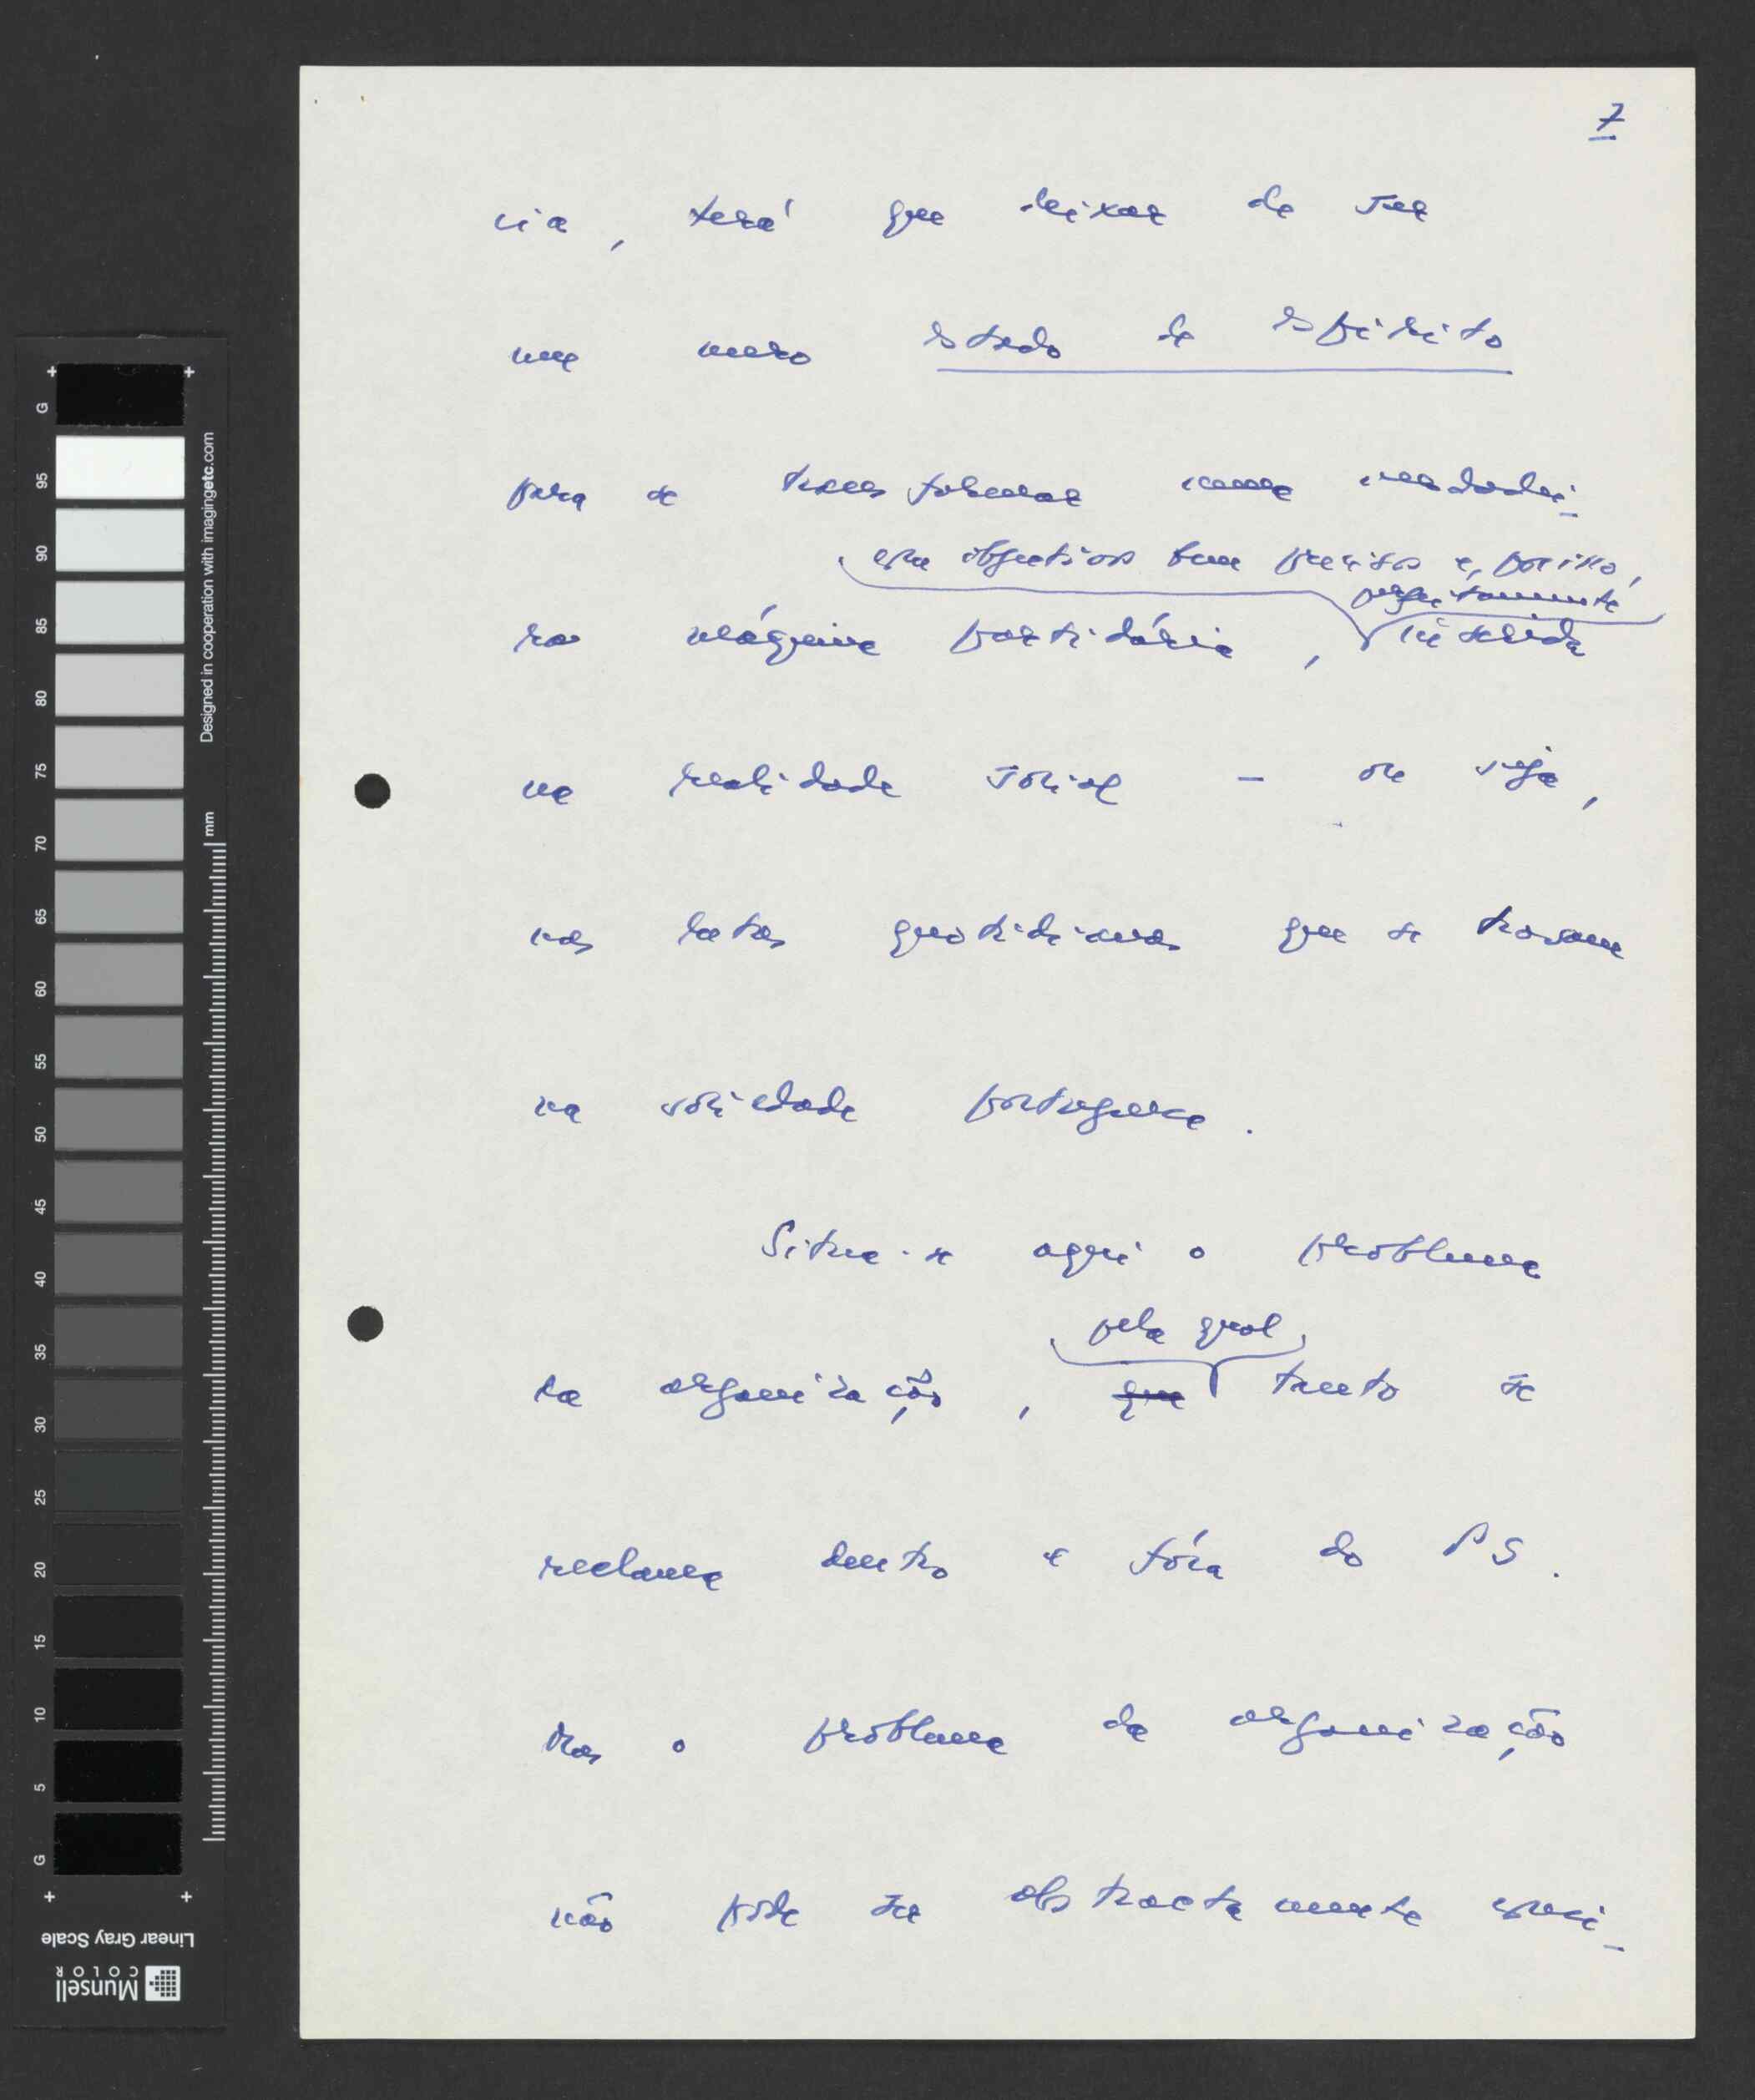 7
cia, terá que deixar de ser
um mero estado de espírito
para se transformar numa verdadei-
com objectivos bem precisos e, por isso,
perfeitamente
ra máquina partidária, inserida
na realidade social - ou seja,
nas lutas quotidianas que se travam
na sociedade portuguesa.
Situa-se aqui o problema
pela qual
da organização, que tanto se
reclama dentro e fóra do PS.
Mas o problema da organização
não pode ser abstractamente
G 95 90 85 80 75 70 65 60 55 50 45 40 35 30 25 20 15 10 5 G
Designed in cooperation with imagingetc.com
mm
Linear Gray Scale
Munsell
COLOR